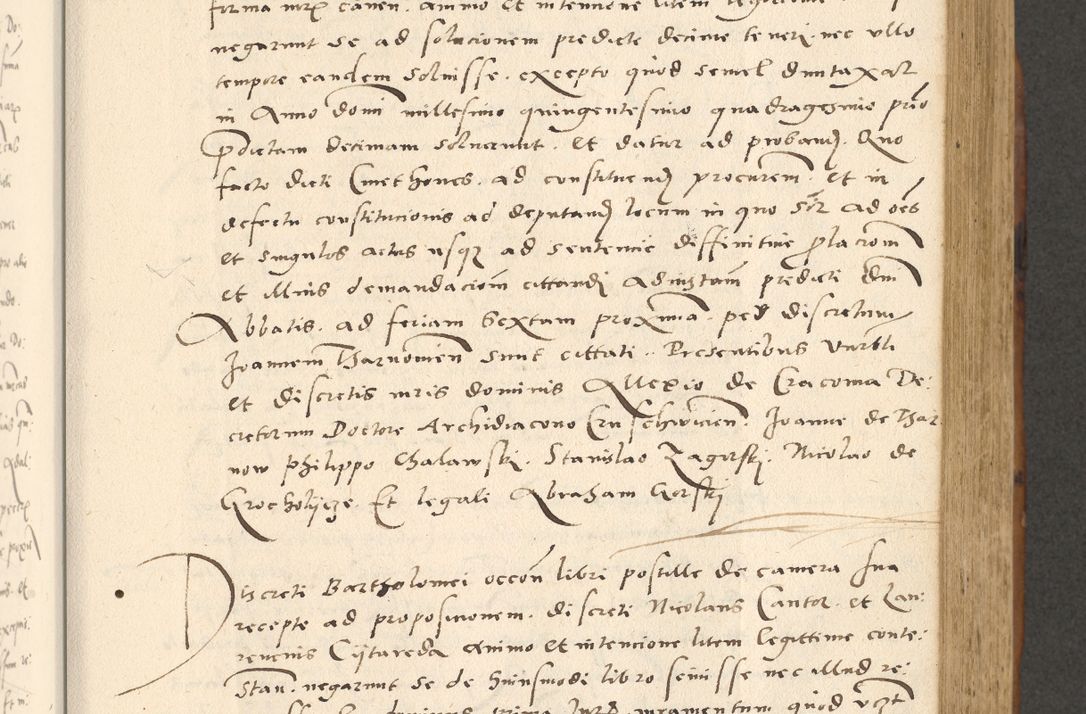 forma iuris canon. animo et intencione litem
negarunt se ad solucionem predicte decime teneri. nec ullo
tempore eandem soluisse. excepto quod semel duntaxat
in Anno domi millesimo quingentesimo quadragesimo prio
pdictam decimam soluerunt. Et datur ad proband. Quo
facto dicti Cmethones. ad constituend procurem. Et in
defectu constitucionis ad deputand locum in quo ad oes
et singulos actus usque ad sentencie diffinitiue placiom
et illius demandaciom cittandi ad instam predicti dni
Abbatis. ad feriam Sextam proxima. per discretum
Joannem Tharnowien sunt cittati. Presentibus Venrbli
et discretis viris dominis Allexio de Cracouia De:
cretorum Doctore Archidiacono Cruschwicien. Joanne de Thar
now Philippo Chalawski. Stanislao Zagorski. Nicolao de
Grocholycze. Et legali Abraham Gorski
Discreti Bartholomei occon libri postille de camera sua
recepte ad proposicionem. discreti Nicolaus Cantor. et Lau:
rencius Cijtareda animo et intencione litem legittime conte:
stan. negarunt se de huiusmodi libro scivisse nec illud re:
iuramentum quod